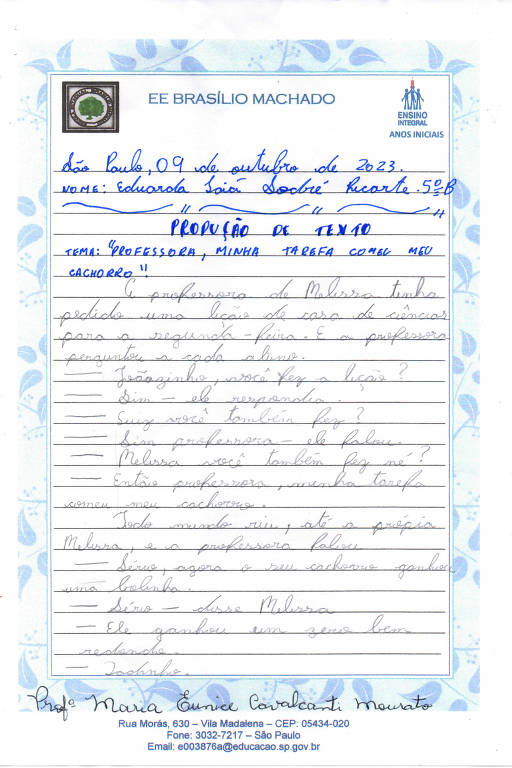 EE BRASÍLIO MACHADO
ENSINO
INTEGRAL
ANOS INICIAIS
São Paulo, 09 de outubro de 2023.
NOME: Eduarda Saiá Sodré Ricarte. 5ºB
PRODUÇÃO DE TEXTO
TEMA: "PROFESSORA, MINHA TAREFA COMEU MEU
CACHORRO"!
A professora de Melissa tinha
pedido uma lição de casa de ciências
para a segunda-feira. E a professora
perguntou a cada aluno.
— Joãozinho, você fez a lição?
— Sim – ele respondia.
— Suzy você também fez?
— Sim professora – ele falou.
— Melissa você também fez né?
— Então professora, minha tarefa
comeu meu cachorro.
Todo mundo riu, até a própia
Melissa, e a professora falou
— Sério, agora o seu cachorro ganhou
uma bolinha.
— Sério – disse Melissa
— Ele ganhou um zero bem
redondo.
— Tadinho.
Profª Maria Eunice Cavalcanti Mourato
Rua Morás, 630 – Vila Madalena – CEP: 05434-020
Fone: 3032-7217 – São Paulo
Email: e003876a@educacao.sp.gov.br